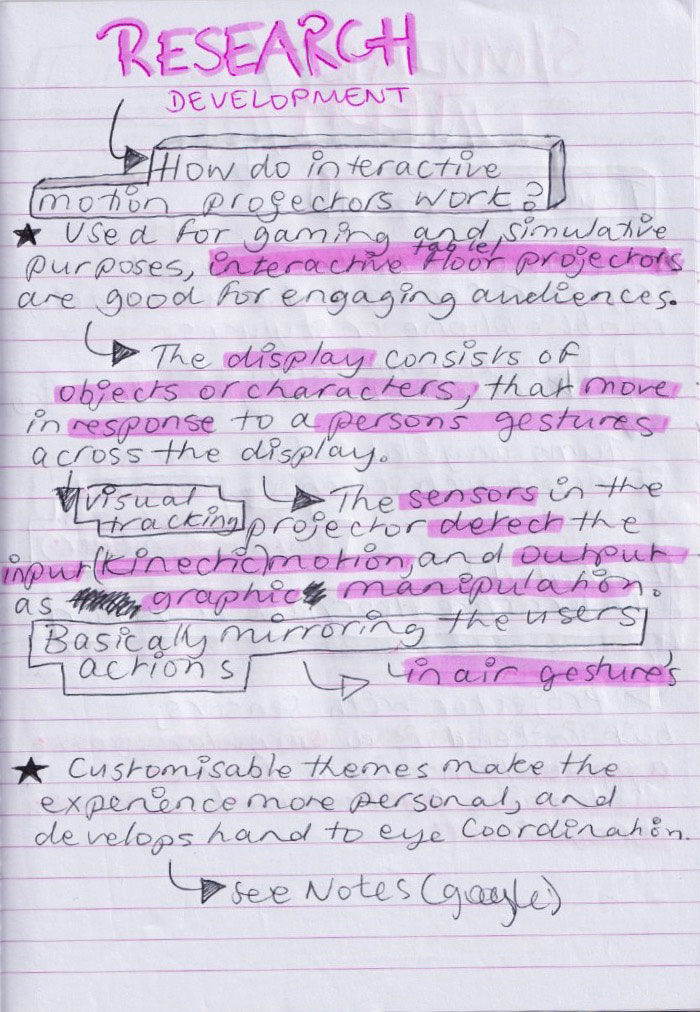 RESEARCH
DEVELOPMENT
How do interactive
motion projectors work?
★ Used for gaming and simulative
table/
purposes, interactive floor projectors
are good for engaging audiences.
The display consists of
objects or characters, that move
in response to a persons gestures
across the display.
visual
tracking
The sensors in the
projector detect the
input (kinectic) motion, and output
as graphic manipulation.
Basically mirroring the users
actions
in air gesture's
★ Customisable themes make the
experience more personal, and
develops hand to eye coordination.
see Notes (google)